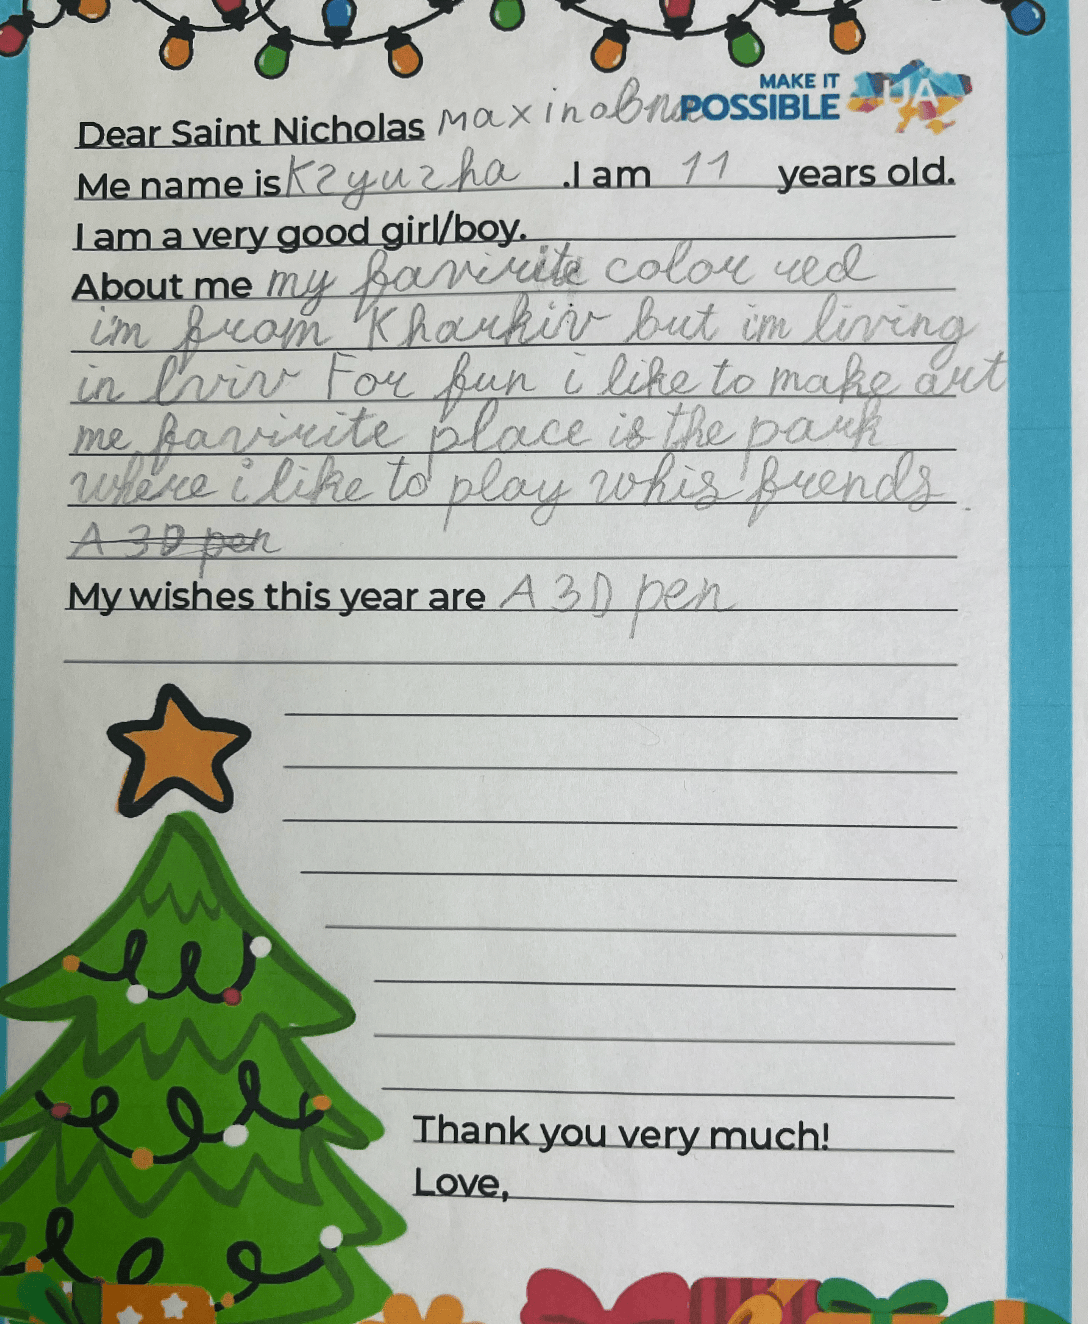 MAKE IT
POSSIBLE UA
Dear Saint Nicholas
Me name is Kzyuzha .I am 11 years old.
I am a very good girl/boy.
About me my favirite colour red
i'm from Kharkiv but im living
in lviv For fun i like to make art
me favirite place is the park
where i like to play whis frends.
A 3D pen
My wishes this year are A 3D pen
Thank you very much!
Love,